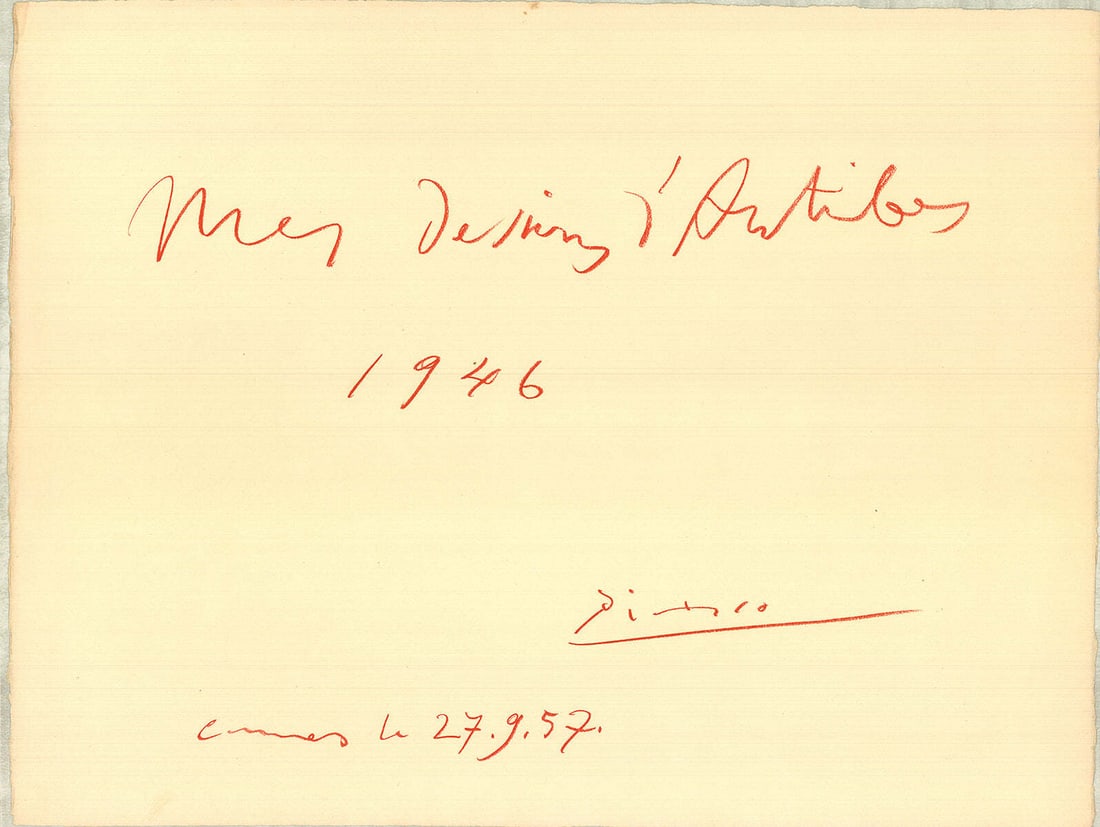 Mes dessins d'Antibes
1946
Picasso
Cannes le 27.9.57.